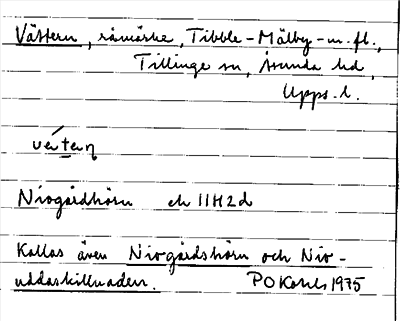 Västern, råmärke, Tibble-Mälby-m.fl.,
Tillinge sn, Åsunda hd,
Upps. l.
vè́steṇ
Niogårdhörn ek 11H2d
Kallas även Niogårdshörn och Nio-
uddaskillnaden. PO Kohls 1975